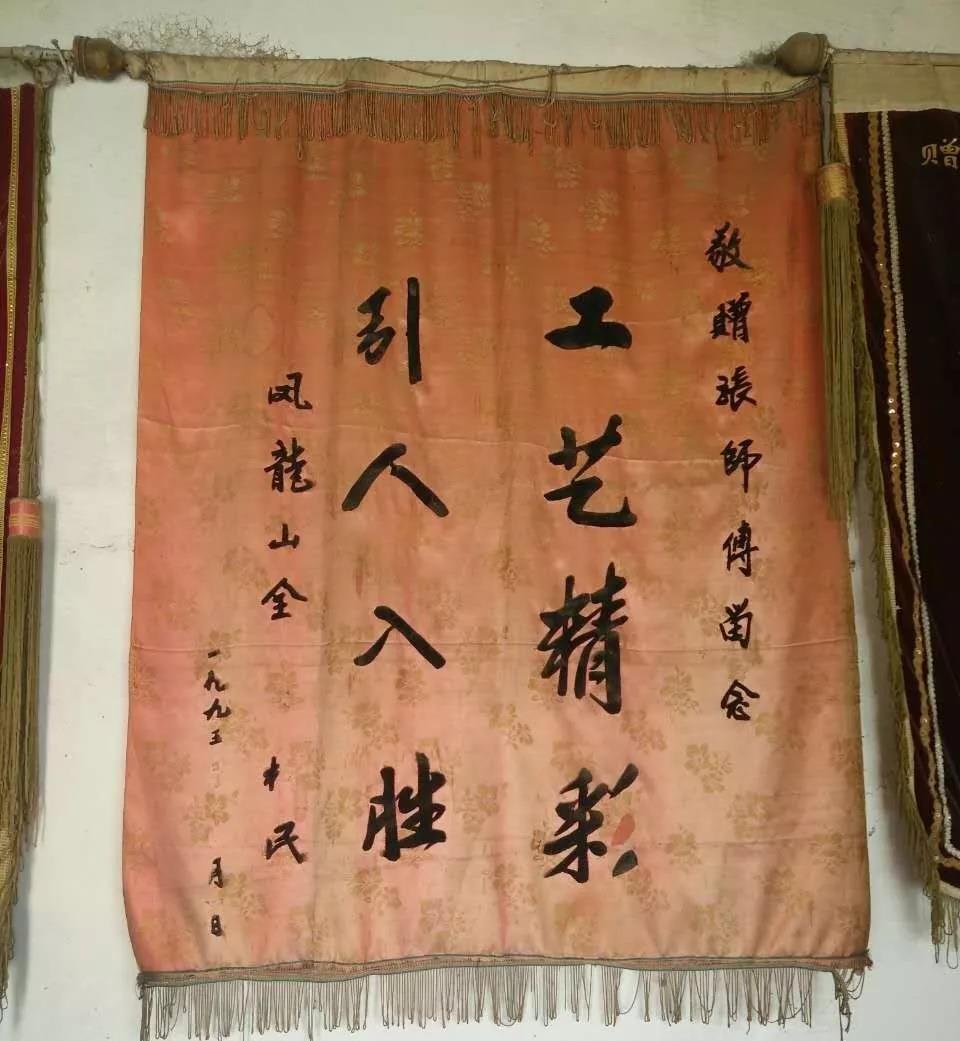 赠
敬贈張師傅留念
工艺精彩
引人入胜
凤龍山全 村民
一九九五 月 日